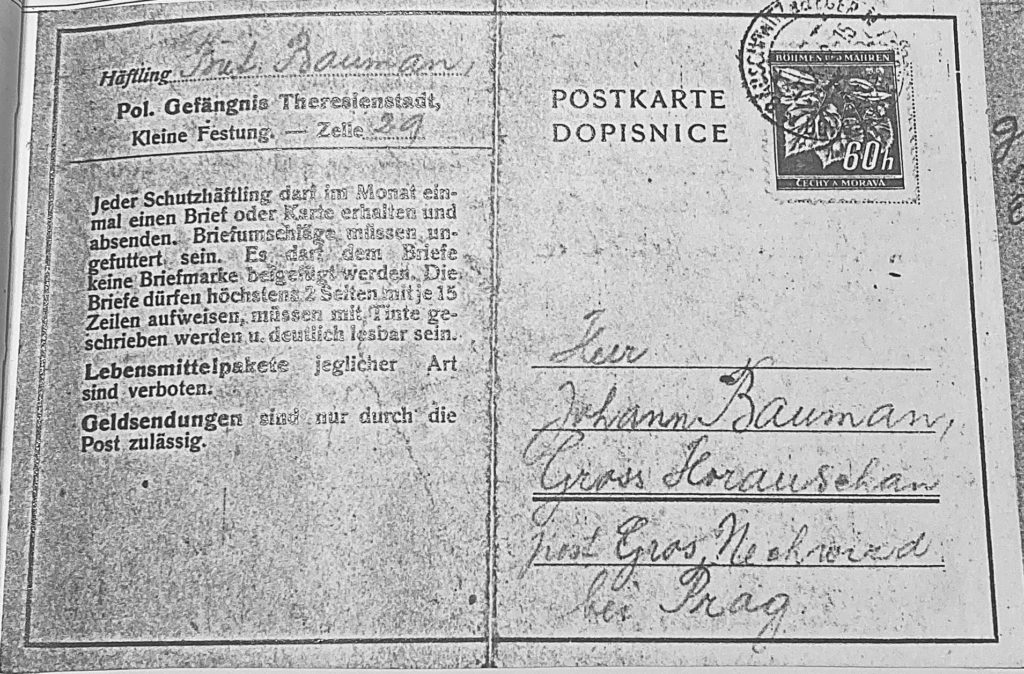 Häftling Bauman,
Pol. Gefängnis Theresienstadt,
Kleine Festung. — Zelle 29
Jeder Schutzhäftling darf im Monat ein-
mal einen Brief oder Karte erhalten und
absenden. Briefumschläge müssen un-
gefuttert sein. Es darf dem Briefe
keine Briefmarke beigefügt werden. Die
Briefe dürfen höchstens 2 Seiten mit je 15
Zeilen aufweisen, müssen mit Tinte ge-
schrieben werden u. deutlich lesbar sein.
Lebensmittelpakete jeglicher Art
sind verboten.
Geldsendungen sind nur durch die
Post zulässig.
POSTKARTE
DOPISNICE
BÖHMEN UND MÄHREN
60h
ČECHY A MORAVA
Herr
Johann Bauman,
Gross Horauschan
post Gros Nechwizd
bei Prag